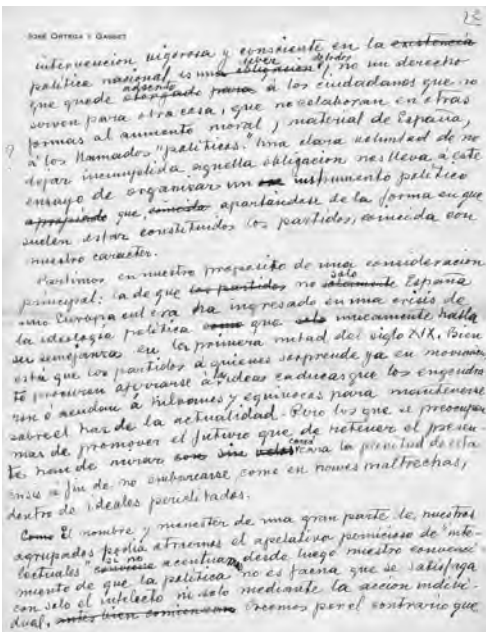 2ª
JOSÉ ORTEGA Y GASSET
intervención vigorosa y consciente en la existencia
política nacional, es una obligación deber de todos, no un derecho
que quede adscrito otorgado para a los ciudadanos que no
sirven para otra cosa, que no colaboran en otras
formas al aumento moral y material de España,
? a los llamados "políticos." Una clara voluntad de no
dejar incumplida aquella obligación nos lleva á este
ensayo de organizar un instrumento político
apropiado que, coincida apartándose de la forma en que
suelen estar constituídos los partidos, coincida con
nuestro caracter.
Partimos en nuestro propósito de una consideración
principal: la de que los partidos no solo solamente España
sino Europa entera ha ingresado en una crisis de
la ideología política como que solo unicamente halla
su semejanza en la primera mitad del siglo XIX. Bien
está que los partidos á quienes sorprende ya en movimien
to procuren aferrarse á ideas caducas que los engendra
ron ó acudan á retoques y equívocos para mantenerse
sobre el haz de la actualidad. Pero los que se preocupan
mas de promover el futuro que de retener el presen
te han de mirar con sin velos cara cara la plenitud de esta
crisis a fin de no embarcarse como en naves maltrechas,
dentro de ideales periclitados.
Como El nombre y menester de una gran parte de nuestros
agrupados podía atraernos el apelativo pernicioso de "inte-
lectuales" si no acentuara desde luego nuestro convenci
miento de que la política no es faena que se satisfaga
con solo el intelecto ni solo mediante la acción indivi-
dual, antes bien comienzan creemos por el contrario que